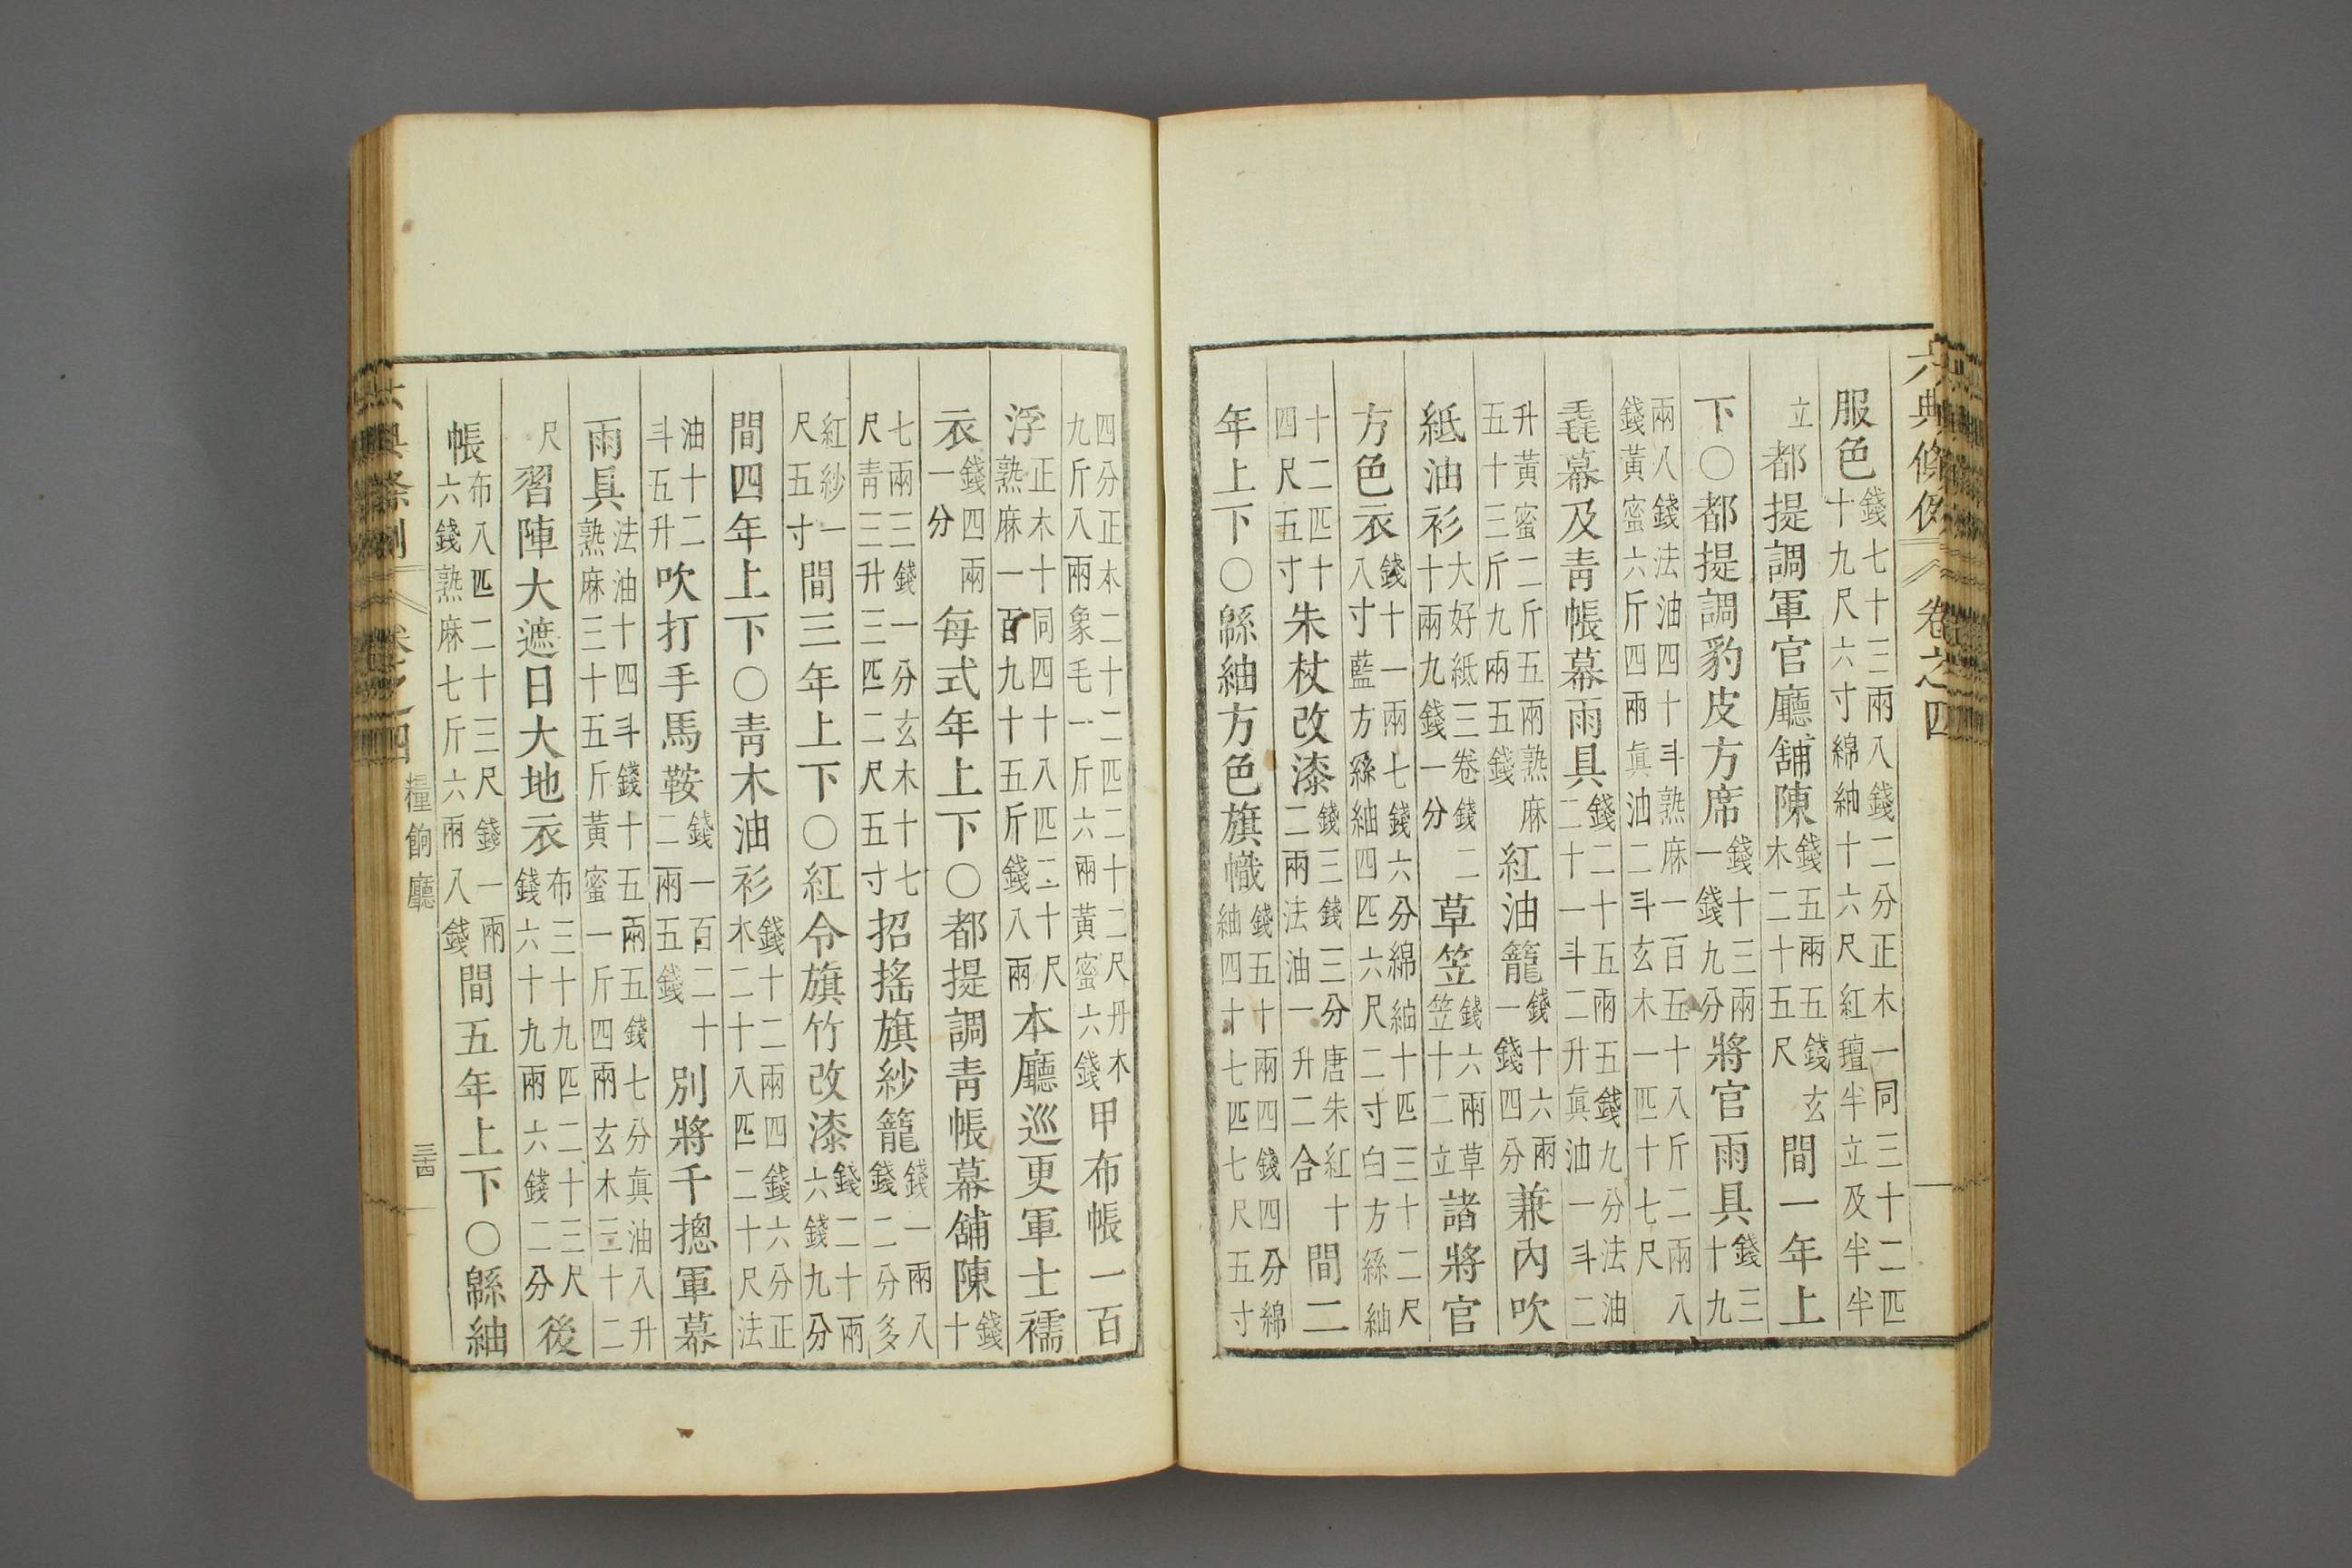 六典條例 卷之四
服色錢七十三兩八錢二分正木一同三十二匹十九尺六寸綿紬十六尺紅氊半立及半半
立都提調軍官廳舖陳錢五兩五錢玄木二十五尺間一年上
下○都提調豹皮方席錢十三兩一錢九分將官雨具錢三十九
兩八錢法油四十斗熟麻一百五十八斤二兩八錢黃蜜六斤四兩眞油二斗玄木一匹十七尺
毳幕及靑帳幕雨具錢二十五兩五錢九分法油二十一斗二升眞油一斗二
升黃蜜二斤五兩熟麻五十三斤九兩五錢紅油籠錢十六兩一錢四分兼內吹
紙油衫大好紙三卷錢二十兩九錢一分草笠錢六兩草笠十二立諸將官
方色衣錢十一兩七錢六分綿紬十匹三十二尺八寸藍方絲紬四匹六尺二寸白方絲紬
十二匹十四尺五寸朱杖改漆錢三錢三分唐朱紅十二兩法油一升二合間二
年上下○緜紬方色旗幟錢五十兩四錢四分綿紬四十七匹七尺五寸
四分正木二十二匹二十二尺丹木九斤八兩象毛一斤六兩黃蜜六錢甲布帳一百
浮正木十同四十八匹二十尺熟麻一百九十五斤錢八兩本廳巡更軍士襦
衣錢四兩一分每式年上下○都提調靑帳幕舖陳錢十
七兩三錢一分玄木十七尺靑三升三匹二尺五寸招搖旗紗籠錢一兩八錢二分多
紅紗一尺五寸間三年上下○紅令旗竹改漆錢二十兩六錢九分
間四年上下○靑木油衫錢十二兩四錢六分正木二十八匹二十尺法
油十二斗五升吹打手馬鞍錢一百二十二兩五錢別將千摠軍幕
雨具法油十四斗錢十五兩五錢七分眞油八升熟麻三十五斤黃蜜一斤四兩玄木三十二
尺習陣大遮日大地衣布三十九匹二十三尺錢六十九兩六錢二分後
帳布八匹二十三尺錢一兩六錢熟麻七斤六兩八錢間五年上下○緜紬
六典條例 卷之四 糧餉廳 三十四